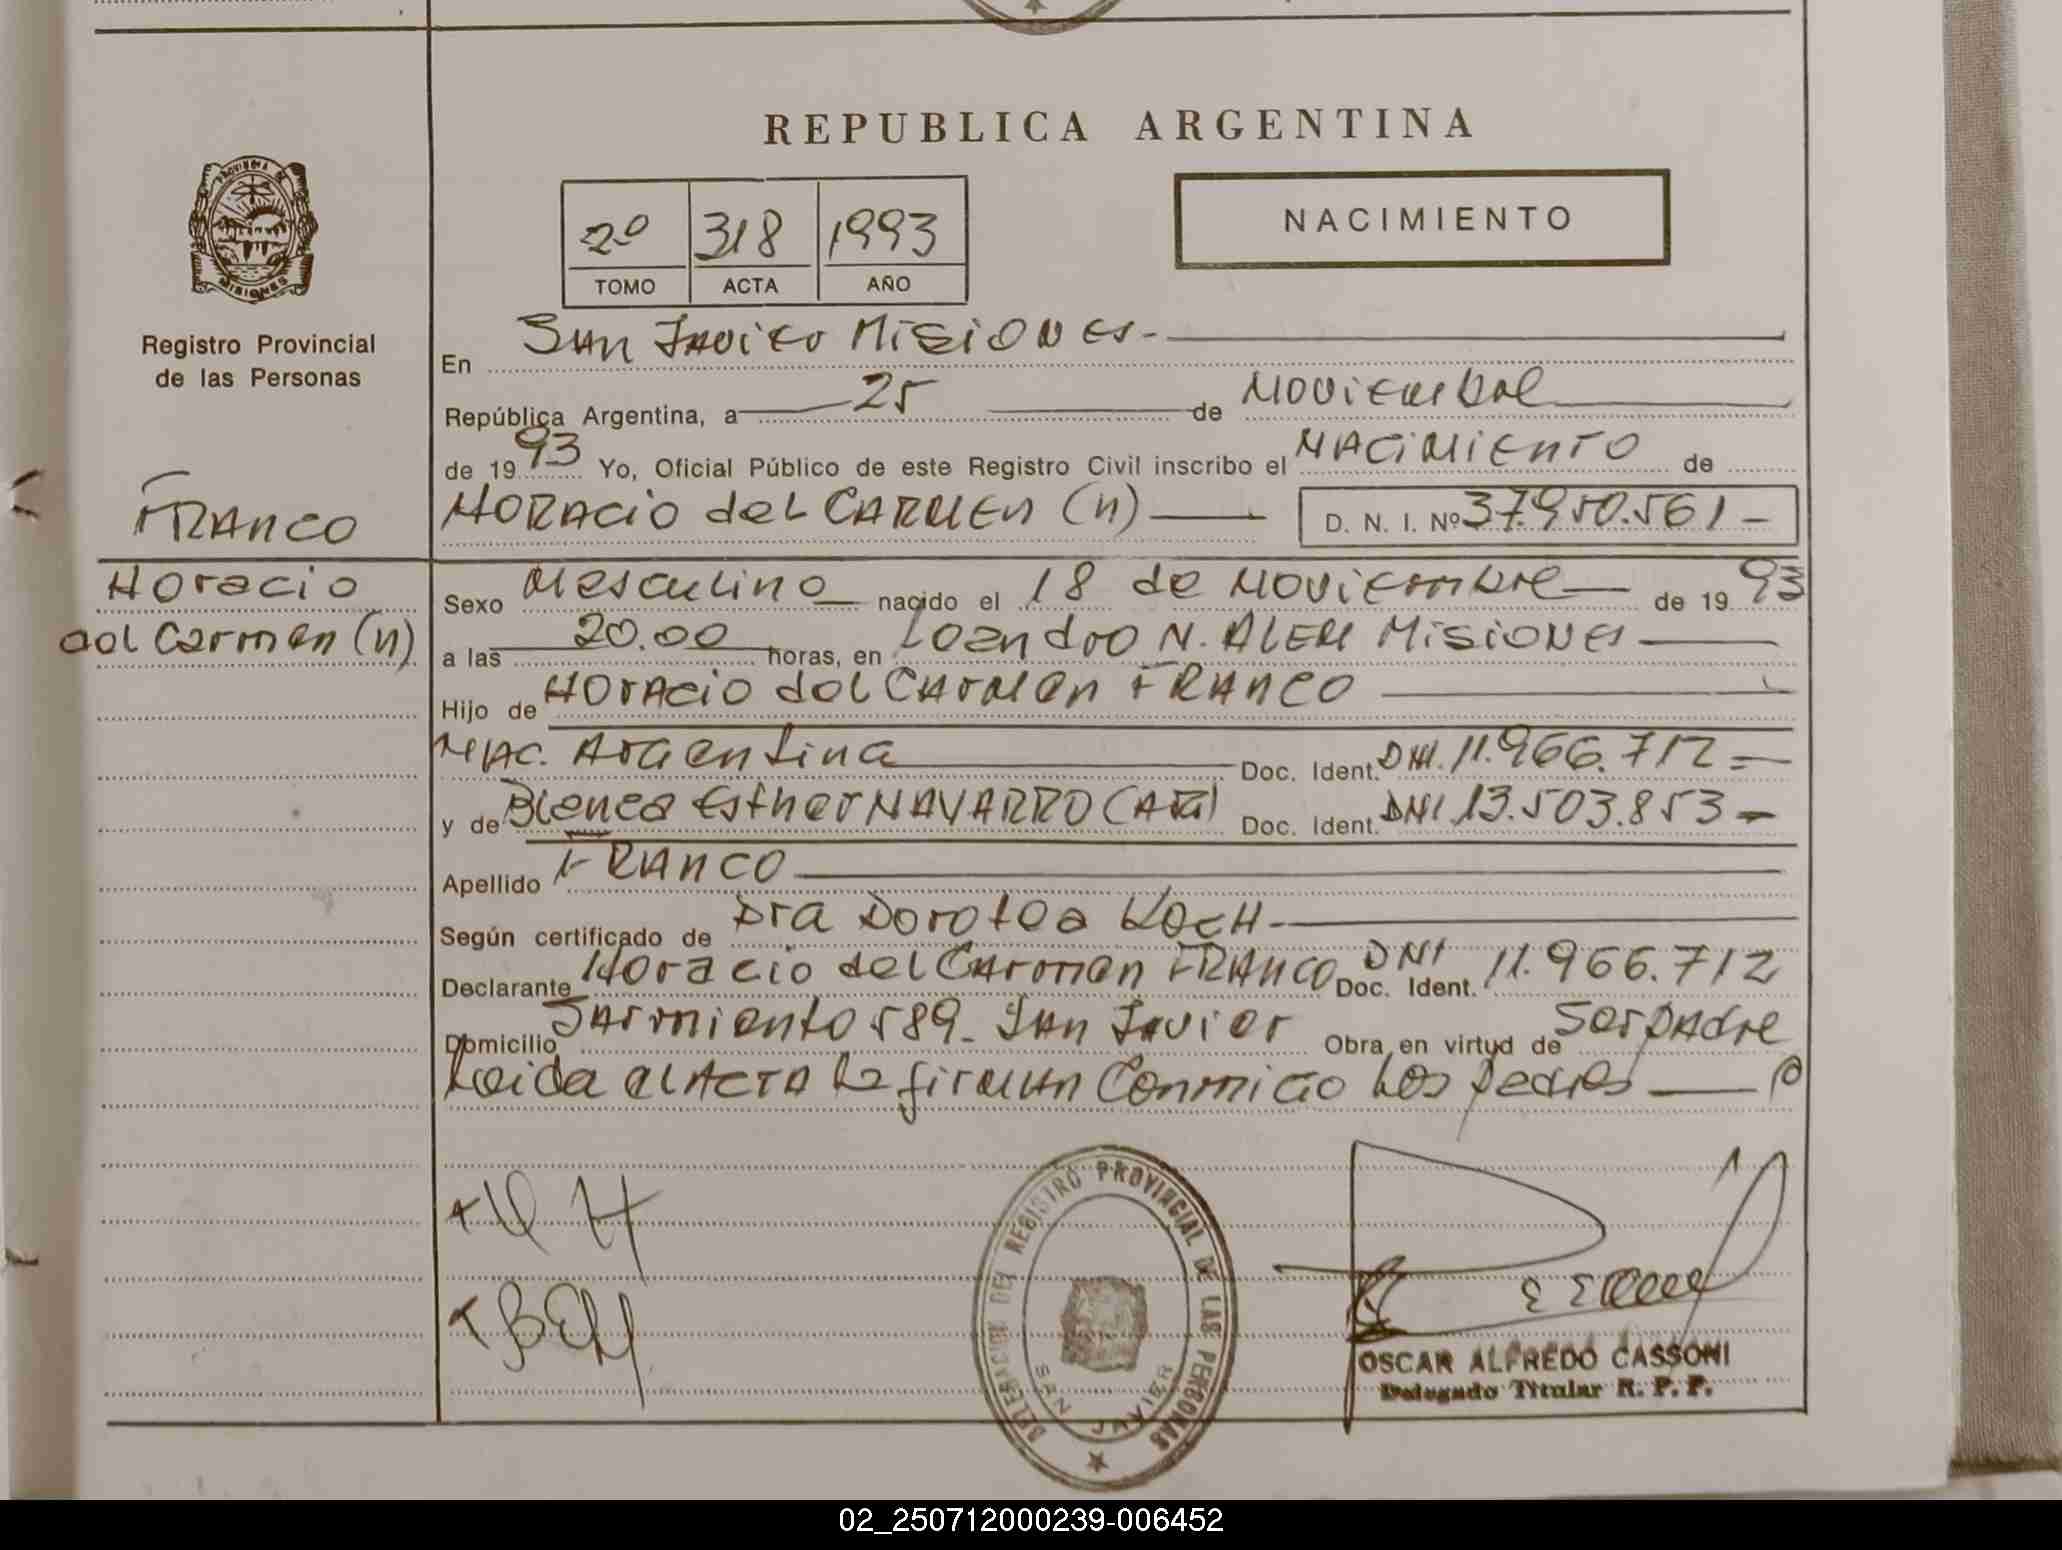 REPUBLICA ARGENTINA
PROVINCIA DE
MISIONES
Registro Provincial
de las Personas
2º 318 1993
TOMO ACTA AÑO
NACIMIENTO
En San Javier Misiones.-
República Argentina, a 25 de Noviembre
de 1993 Yo, Oficial Público de este Registro Civil inscribo el NACIMIENTO de
HORACIO del CARMEN (n) D. N. I. Nº 37.950.561 -
FRANCO
Horacio
del Carmen (n)
Sexo Masculino nacido el 18 de Noviembre de 1993
a las 20.00 horas, en Leandro N. ALEM Misiones
Hijo de Horacio del Carmen FRANCO
NAC. Argentina Doc. Ident. DNI. 11.966.712 =
y de Blanca Esther NAVARRO (ARG) Doc. Ident. DNI. 13.503.853 -
Apellido FRANCO
Según certificado de Dra Dorotea Koch -
Declarante Horacio del Carmen FRANCO Doc. Ident. DNI 11.966.712
Domicilio Sarmiento 589 - San Javier Obra en virtud de Ser padre
Leida el ACTA la firman Conmigo los padres
DELEGACION DEL REGISTRO PROVINCIAL DE LAS PERSONAS
SAN JAVIER
OSCAR ALFREDO CASSONI
Delegado Titular R. P. P.
02_250712000239-006452